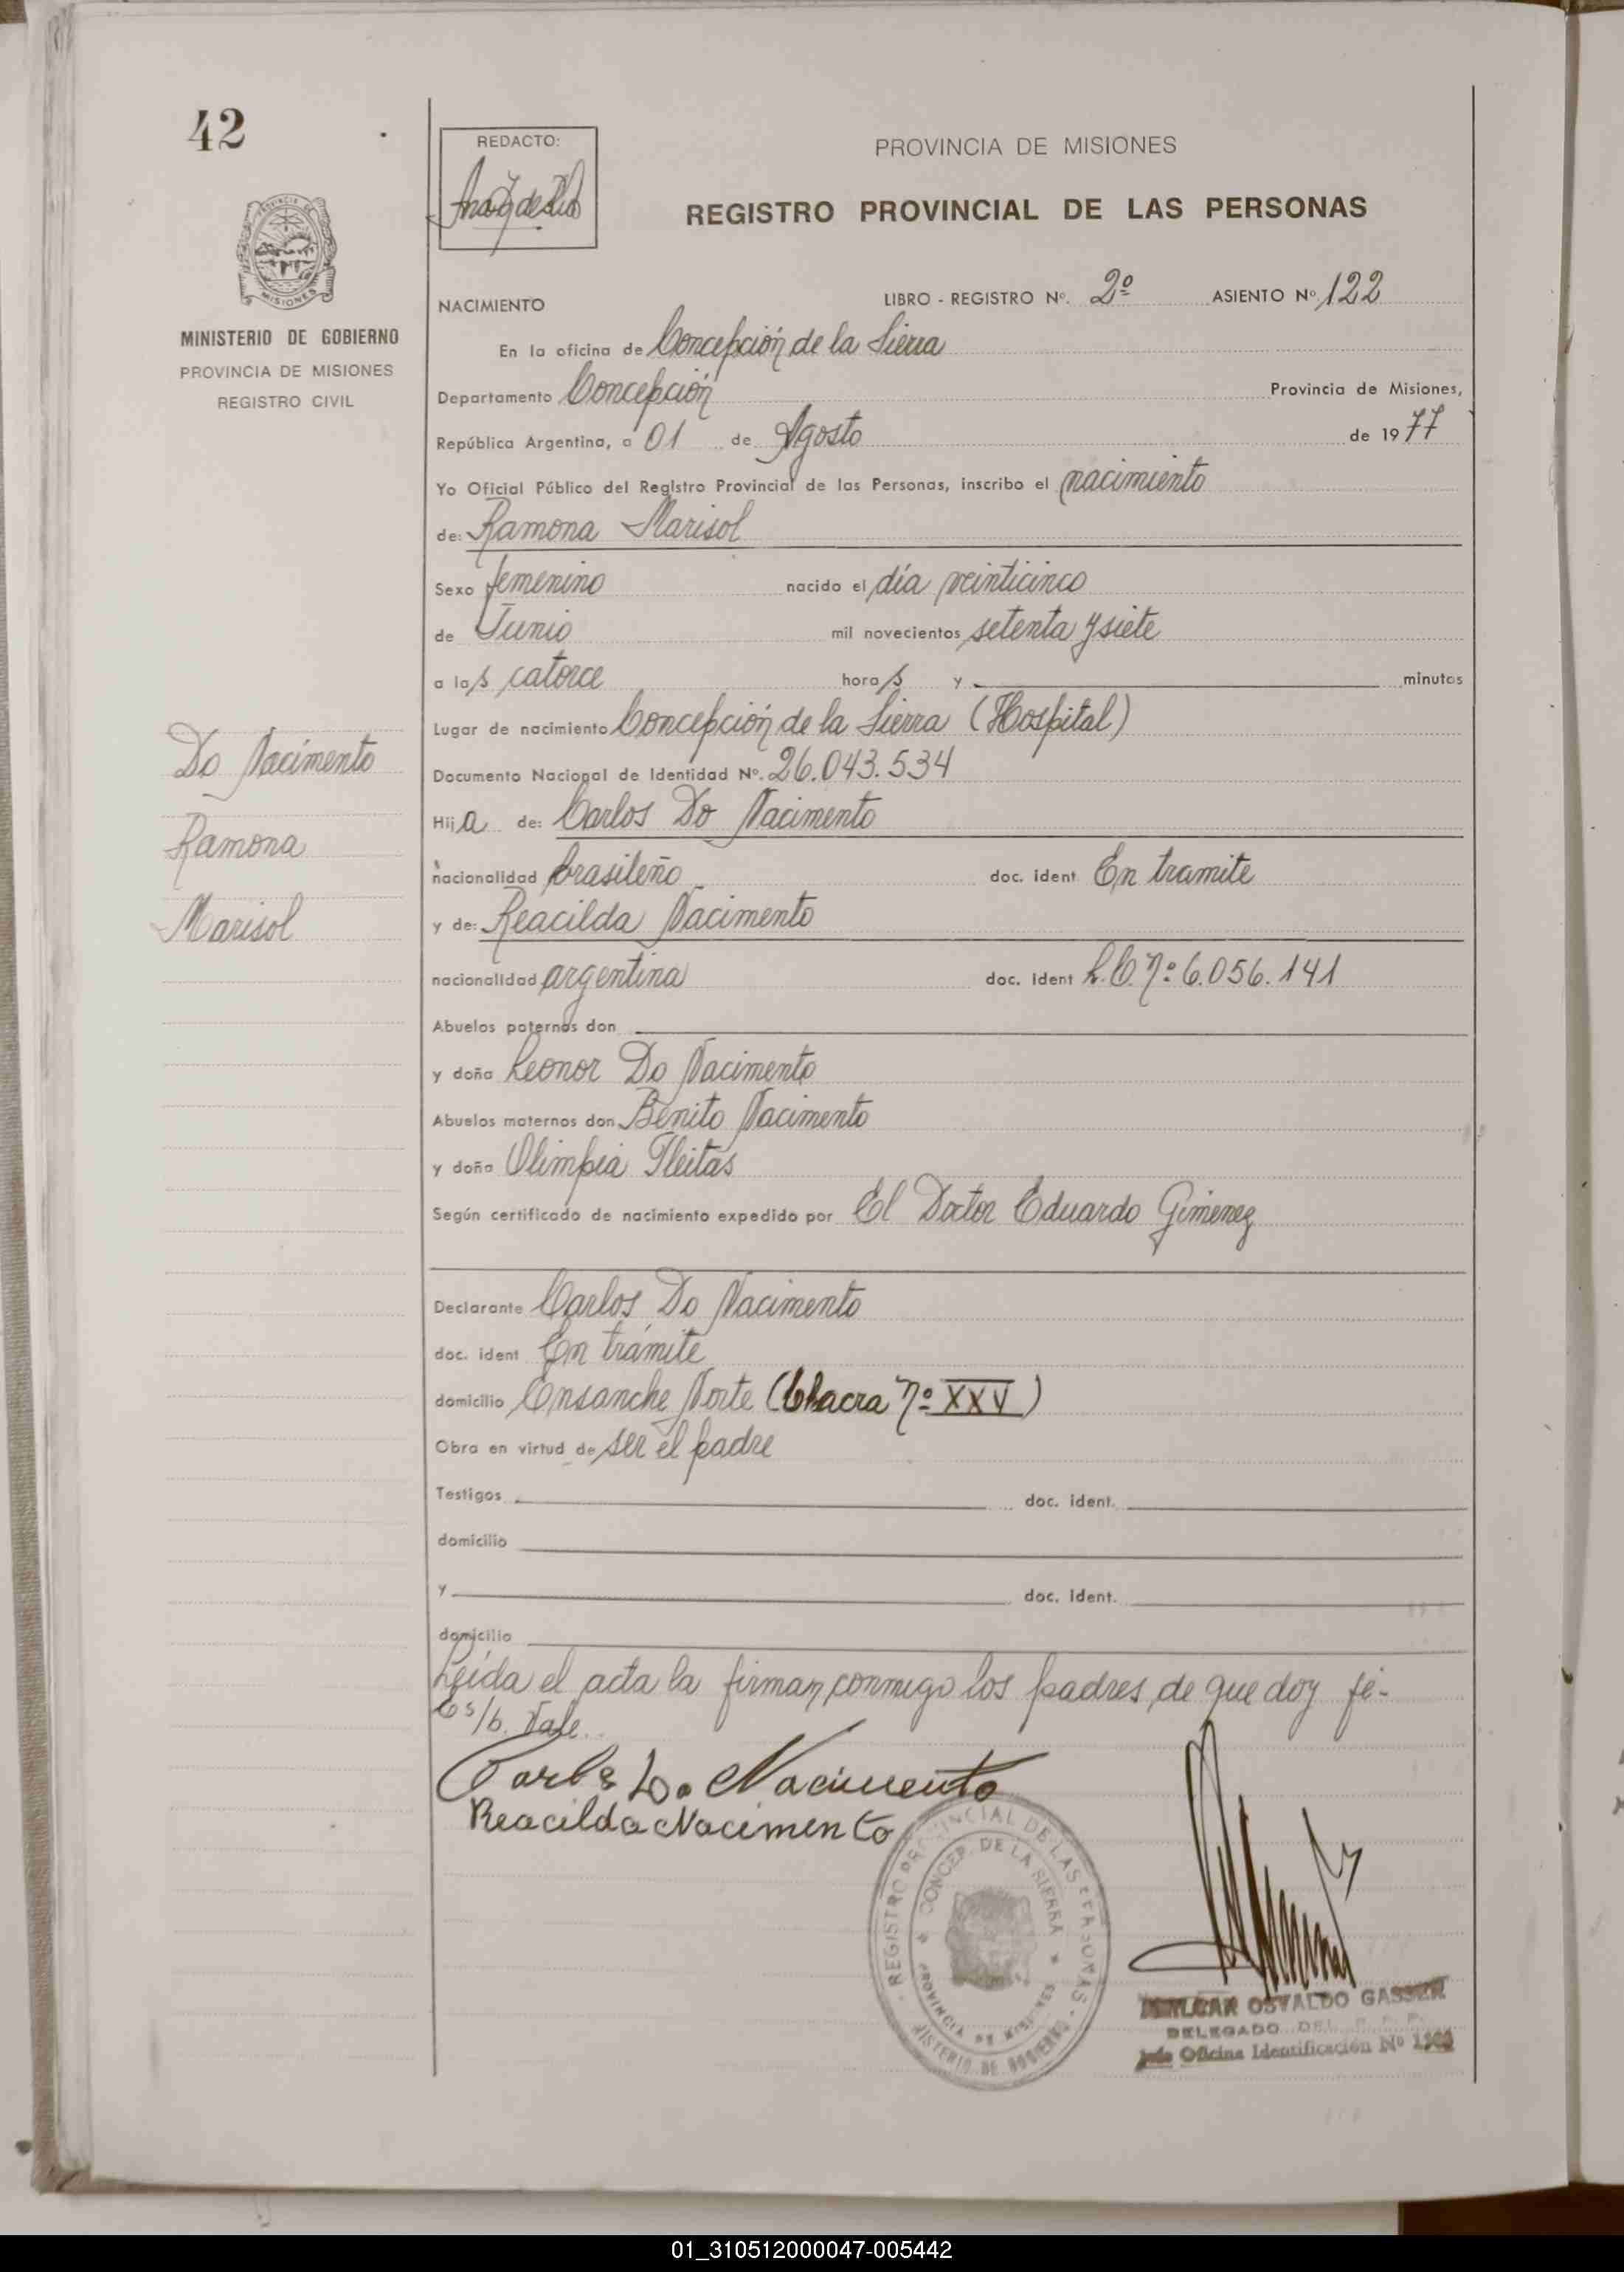 42
REDACTO:
PROVINCIA DE MISIONES
REGISTRO PROVINCIAL DE LAS PERSONAS
MISIONES
MINISTERIO DE GOBIERNO
PROVINCIA DE MISIONES
REGISTRO CIVIL
NACIMIENTO LIBRO - REGISTRO Nº. 2º ASIENTO Nº. 122
En la oficina de Concepción de la Sierra
Departamento Concepción Provincia de Misiones,
República Argentina, a 01 de Agosto de 1977
Yo Oficial Público del Registro Provincial de las Personas, inscribo el nacimiento
de: Ramona Marisol
Sexo femenino nacido el día veinticinco
de Junio mil novecientos setenta y siete
a las catorce horas y minutos
Lugar de nacimiento Concepción de la Sierra (Hospital)
Documento Nacional de Identidad Nº. 26.043.534
Hija de: Carlos Do Nacimento
nacionalidad brasileño doc. ident En tramite
y de: Reacilda Nacimento
nacionalidad argentina doc. ident L.C. nº 6.056.141
Abuelos paternos don
y doña Leonor Do Nacimento
Abuelos maternos don Benito Nacimento
y doña Olimpia Fleitas
Según certificado de nacimiento expedido por El Doctor Eduardo Gimenez
Do Nacimento
Ramona
Marisol
Declarante Carlos Do Nacimento
doc. ident En trámite
domicilio Ensanche Norte (Chacra nº XXV)
Obra en virtud de ser el padre
Testigos doc. ident.
domicilio
y doc. ident.
domicilio
Leída el acta la firman conmigo los padres, de que doy fé-
Cs/b. Vale.
Carlos Do Nacimento
Reacilda Nacimento
REGISTRO PROVINCIAL DE LAS PERSONAS
CONCEP. DE LA SIERRA
PROVINCIA DE MISIONES
MINISTERIO DE GOBIERNO
OSVALDO GASSER
DELEGADO DEL R. P. P.
Jefe Oficina Identificación Nº
01_310512000047-005442